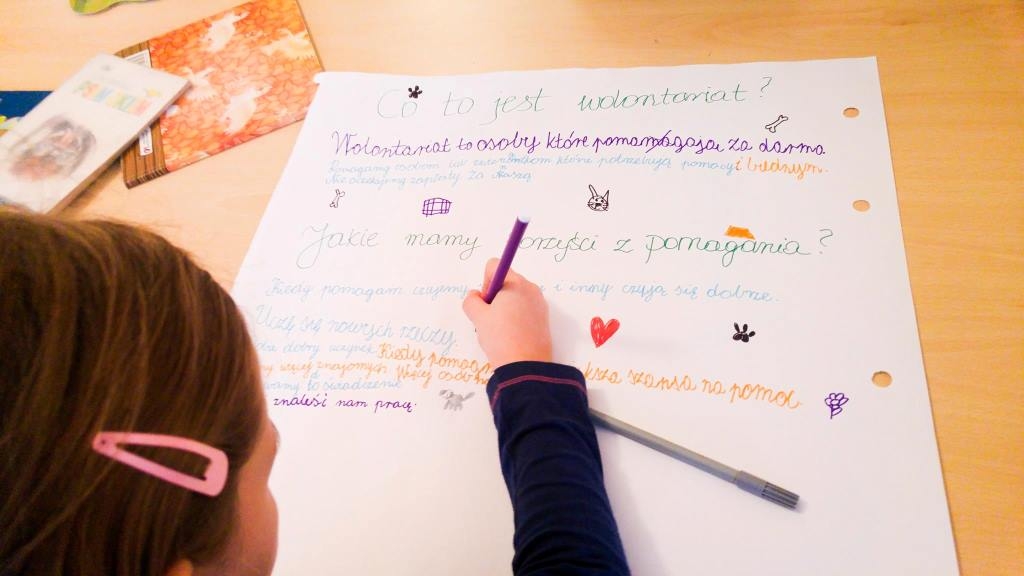 Co to jest wolontariat?
Wolontariat to osoby które pomamagają za darmo
Pomagamy osobom lub zwierzątkom które potrzebują pomocy i biednym.
Nie oczekujemy zapłaty za
Jakie mamy orzyści z pomagania?
Kiedy pomagam czujemy i inny czują się dobrze.
Uczę się nowych rzeczy.
dobry uczynek Kiedy pomaga
więcej znajomych. Więcej osób ksza szansa na pomoc.
to
znaleśi nam pracę.